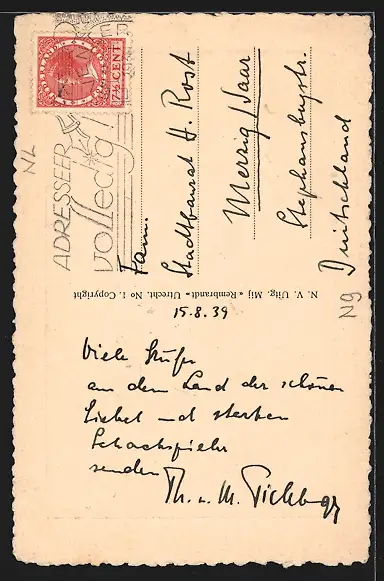 NEDERLAND
7½ CENT
ADRESSEER
volledig!
Fam.
Stadtbaurat H. Rost
Merzig/Saar
Stephansbergstr.
Deutschland
NL
N9
N. V. Uitg. Mij «Rembrandt» Utrecht. No 1. Copyright
15.8.39
Viele Grüße
aus dem Land der schönen
und starken
Schachspieler
senden
Th. u. M.